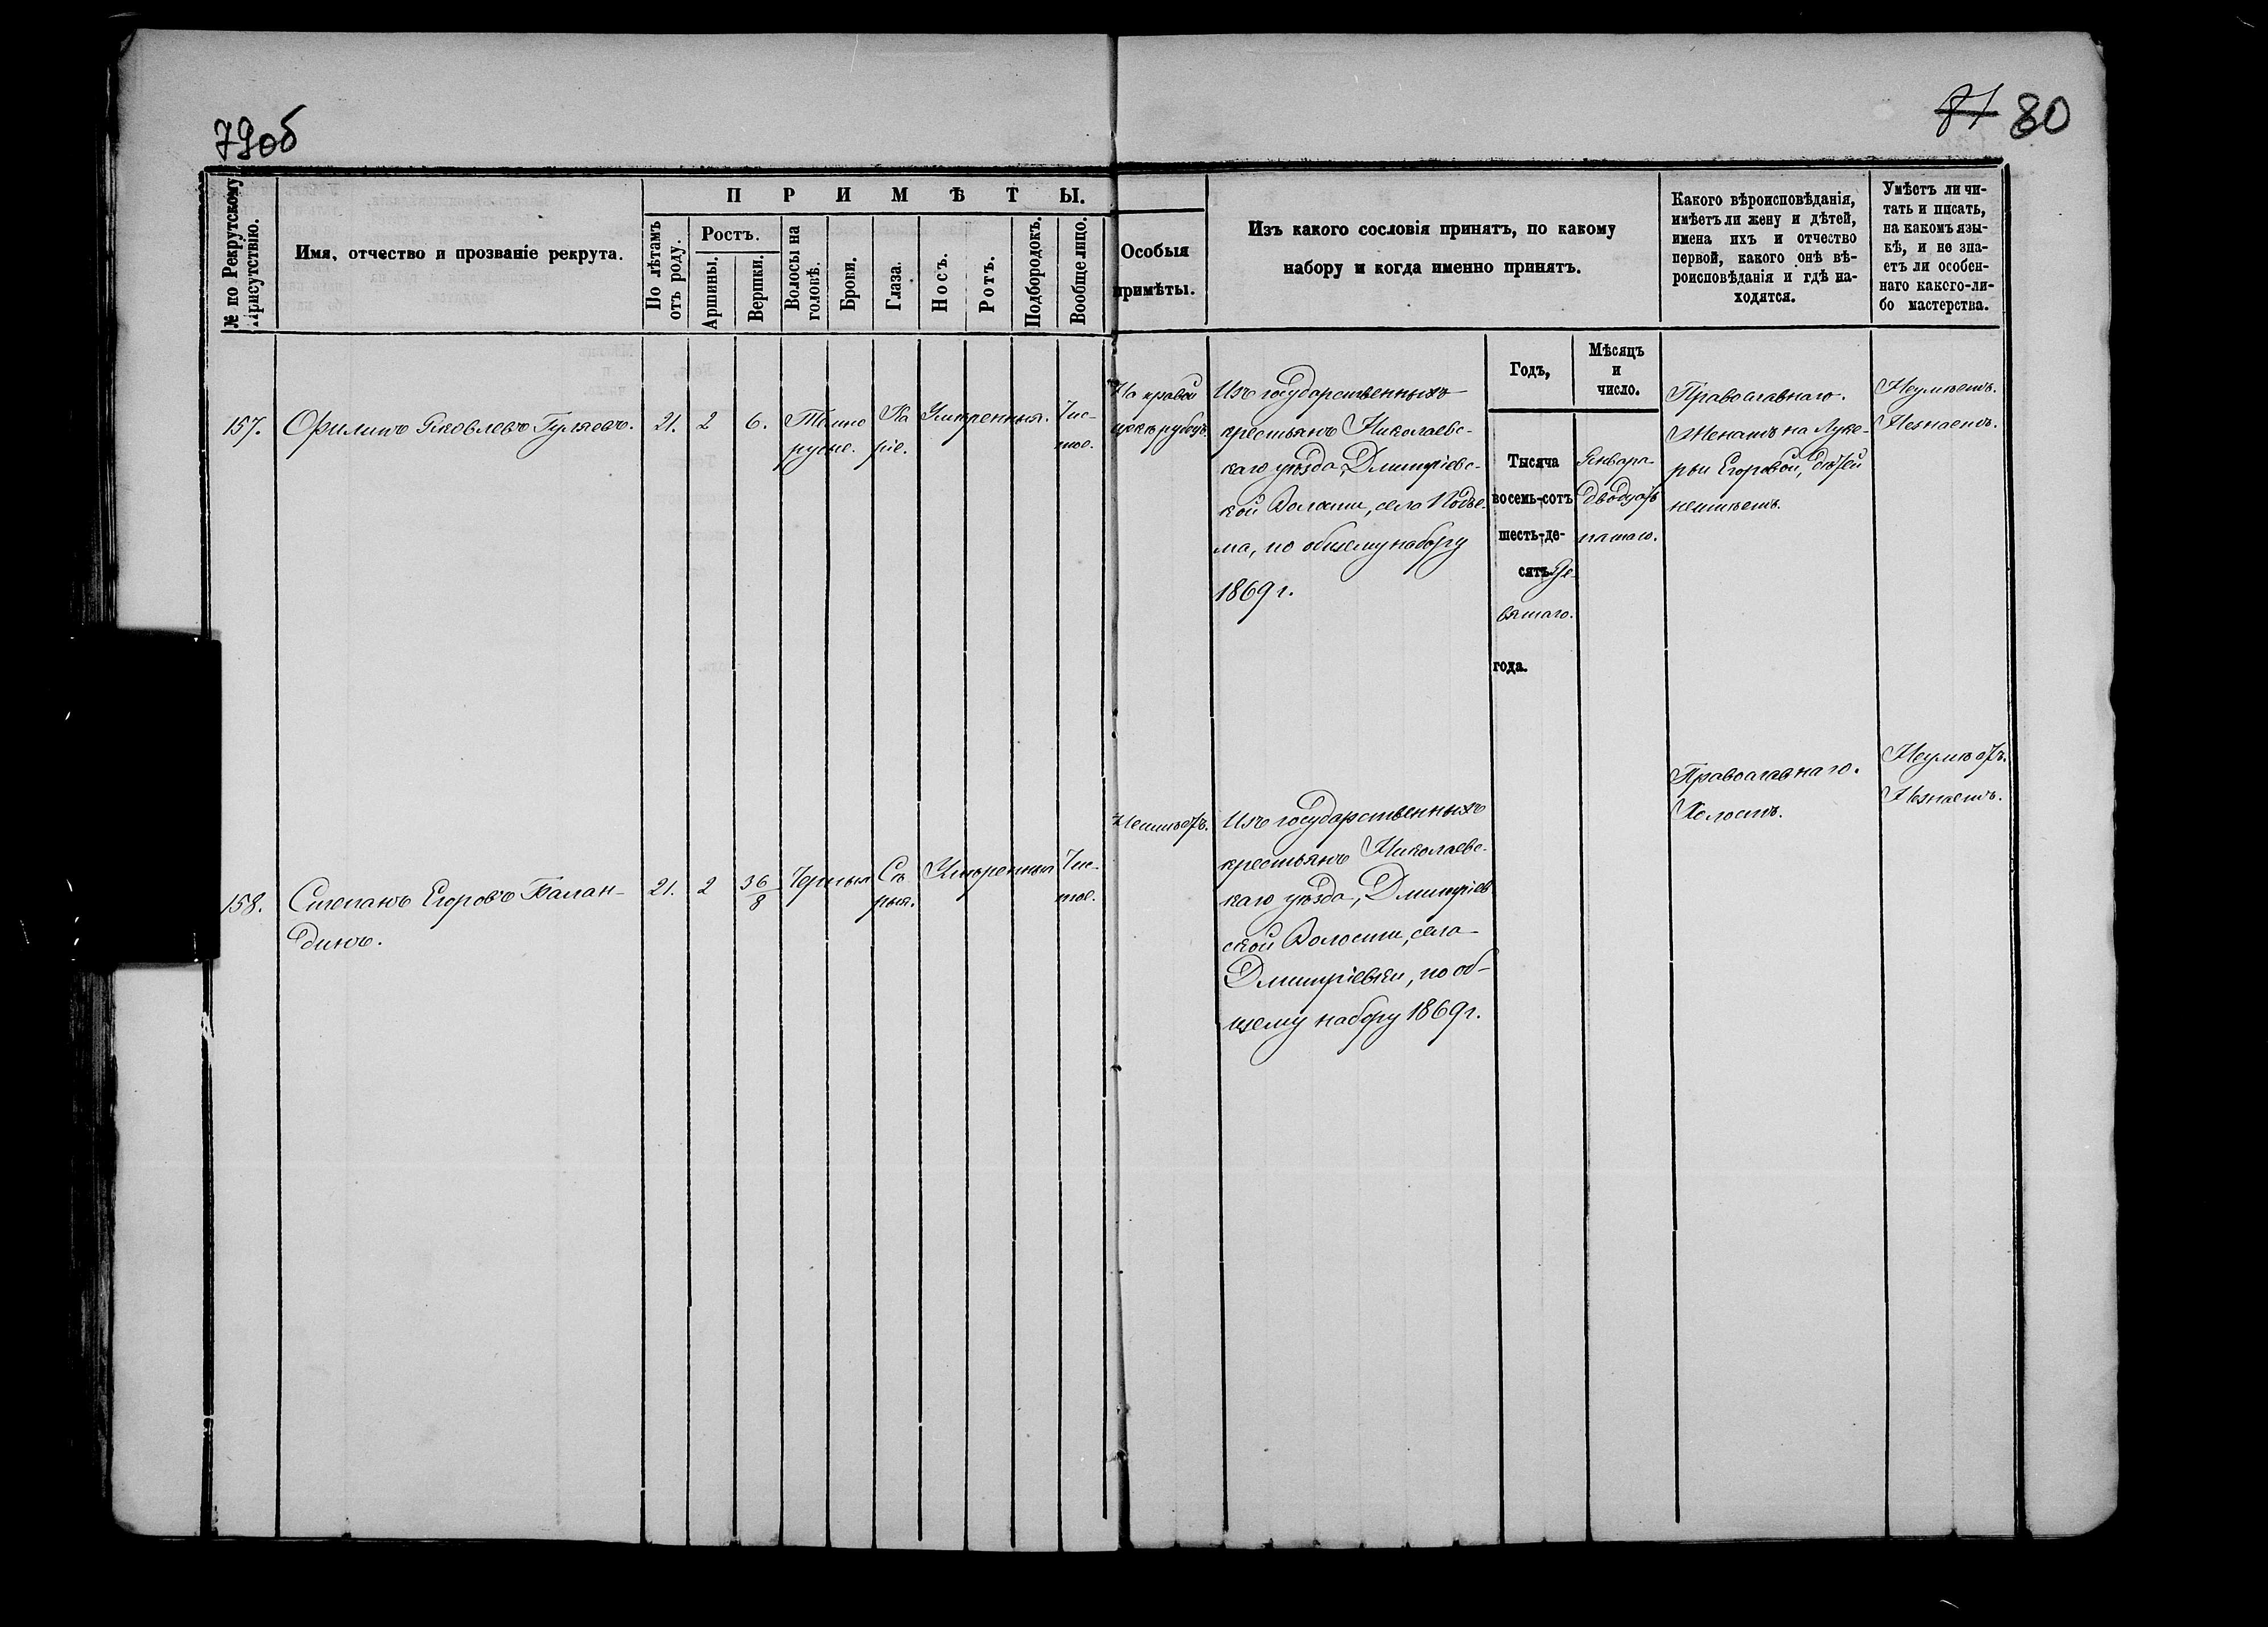 79об
87 80
№ по Рекрутскому Присутствію.
Имя, отчество и прозваніе рекрута.
ПРИМѢТЫ.
По лѣтамъ отъ роду.
Ростъ.
Аршины.
Вершки.
Волосы на головѣ.
Брови.
Глаза.
Носъ.
Ротъ.
Подбородокъ.
Вообще лицо.
Особыя
примѣты.
Изъ какого сословія принятъ, по какому
набору и когда именно принятъ.
Какого вѣроисповѣданія,
имѣетъ ли жену и дѣтей,
имена ихъ и отчество
первой, какого онѣ вѣ-
роисповѣданія и гдѣ на-
ходятся.
Умѣетъ ли чи-
тать и писать,
на какомъ язы-
кѣ, и не зна-
етъ ли особен-
наго какого-ли-
бо мастерства.
Годъ,
Мѣсяцъ
и
число.
157.
Филипъ Яковлевъ Гуляевъ.
21.
2
6.
Темно
русые.
Ка
ріе.
Умѣренныя.
Чис-
тое.
На правой
щекѣ рубецъ.
Изъ государственныхъ
крестьянъ Николаевс-
каго уѣзда, Дмитріевс-
кой Волости, села Подъе-
ма, по общему набору
1869 г.
Тысяча
восемь-сотъ
шесть-де-
сятъ де-
вятаго.
года.
Января
двадцать
пятаго.
Православнаго.
Женатъ на Луке-
рьи Егоровой, дѣтей
неимѣетъ.
Неумѣетъ.
Незнаетъ.
158.
Степанъ Егоровъ Балан-
динъ.
21.
2
3 6/8
Черныя
Сѣ
рыя.
Умѣренныя
Чис-
тое.
Неимѣетъ.
Изъ государственныхъ
крестьянъ Николаевс-
каго уѣзда, Дмитріев
ской Волости, села
Дмитріевки, по об-
щему набору 1869 г.
Православнаго.
Холостъ.
Неумѣетъ.
Незнаетъ.